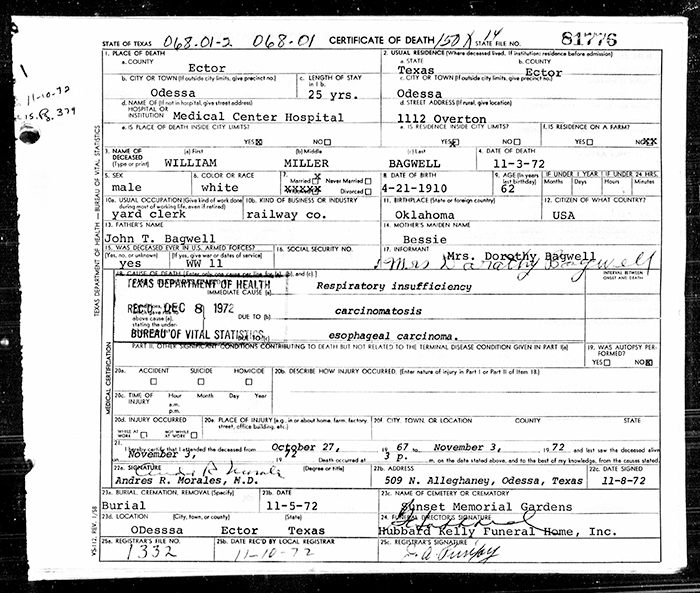 STATE OF TEXAS 068.01-2 068.01 CERTIFICATE OF DEATH 150X 14 STATE FILE NO. 81776
1. PLACE OF DEATH 2. USUAL RESIDENCE (Where deceased lived. If institution: residence before admission)
a. COUNTY Ector a. STATE Texas b. COUNTY Ector
b. CITY OR TOWN (If outside city limits, give precinct no.) Odessa c. LENGTH OF STAY in 1 b. 25 yrs. c. CITY OR TOWN (If outside city limits, give precinct no.) Odessa
11-10-72
Pg. 379
d. NAME OF (If not in hospital, give street address) HOSPITAL OR INSTITUTION Medical Center Hospital d. STREET ADDRESS (If rural, give location) 1112 Overton
e. IS PLACE OF DEATH INSIDE CITY LIMITS? YES X NO e. IS RESIDENCE INSIDE CITY LIMITS? YES X NO f. IS RESIDENCE ON A FARM? YES NO XX
3. NAME OF DECEASED (Type or print) (a) First WILLIAM (b) Middle MILLER (c) Last BAGWELL 4. DATE OF DEATH 11-3-72
5. SEX male 6. COLOR OR RACE white 7. Married X Never Married XXXXX Divorced 8. DATE OF BIRTH 4-21-1910 9. AGE (In years last birthday) 62 IF UNDER 1 YEAR Months Days IF UNDER 24 HRS. Hours Minutes
10a. USUAL OCCUPATION (Give kind of work done during most of working life, even if retired) yard clerk 10b. KIND OF BUSINESS OR INDUSTRY railway co. 11. BIRTHPLACE (State or foreign country) Oklahoma 12. CITIZEN OF WHAT COUNTRY? USA
13. FATHER'S NAME John T. Bagwell 14. MOTHER'S MAIDEN NAME Bessie
15. WAS DECEASED EVER IN U.S. ARMED FORCES? (Yes, no, or unknown) yes (If yes, give war or dates of service) WW 11 16. SOCIAL SECURITY NO. 17. INFORMANT Mrs. Dorothy Bagwell
Mrs Dorothy Bagwell
18. CAUSE OF DEATH [Enter only one cause per line for (a), (b), and (c)] INTERVAL BETWEEN ONSET AND DEATH
TEXAS DEPARTMENT OF HEALTH
IMMEDIATE CAUSE (a) Respiratory insufficiency
REC'D DEC 8 1972
above cause (a), stating the under- DUE TO (b) carcinomatosis
BUREAU OF VITAL STATISTICS
DUE TO (c) esophageal carcinoma.
PART II. OTHER SIGNIFICANT CONDITIONS CONTRIBUTING TO DEATH BUT NOT RELATED TO THE TERMINAL DISEASE CONDITION GIVEN IN PART I(a) 19. WAS AUTOPSY PERFORMED? YES NO X
20a. ACCIDENT SUICIDE HOMICIDE 20b. DESCRIBE HOW INJURY OCCURRED. (Enter nature of injury in Part I or Part II of Item 18.)
20c. TIME OF INJURY Hour a.m. p.m. Month Day Year
20d. INJURY OCCURRED WHILE AT WORK NOT WHILE AT WORK 20e. PLACE OF INJURY (e.g., in or about home, farm, factory, street, office building, etc.) 20f. CITY, TOWN, OR LOCATION COUNTY STATE
21. I hereby certify that I attended the deceased from October 27, 1967 to November 3, 1972 and last saw the deceased alive
on November 3, 1972 Death occurred at 3 P. m. on the date stated above, and to the best of my knowledge, from the causes stated.
22a. SIGNATURE (Degree or title) Andres R. Morales, M.D. 22b. ADDRESS 509 N. Alleghaney, Odessa, Texas 22c. DATE SIGNED 11-8-72
23a. BURIAL, CREMATION, REMOVAL (Specify) Burial 23b. DATE 11-5-72 23c. NAME OF CEMETERY OR CREMATORY Sunset Memorial Gardens
23d. LOCATION (City, town, or county) (State) ODessa Ector Texas 24. FUNERAL DIRECTOR'S SIGNATURE Hubbard Kelly Funeral Home, Inc.
25a. REGISTRAR'S FILE NO. 1332 25b. DATE REC'D BY LOCAL REGISTRAR 11-10-72 25c. REGISTRAR'S SIGNATURE
TEXAS DEPARTMENT OF HEALTH—BUREAU OF VITAL STATISTICS
MEDICAL CERTIFICATION
VS-112, REV. 1/58